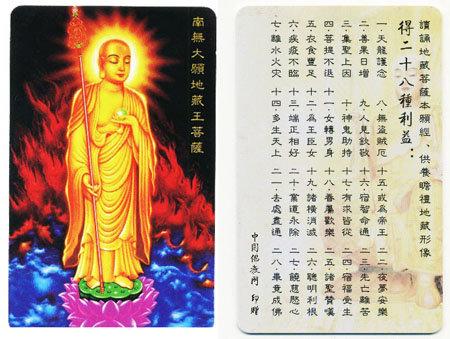 南無大願地藏王菩薩
讀誦地藏菩薩本願經，供養瞻禮地藏形像
得二十八種利益：
一．天龍護念　八．無盜賊厄　十五．或為帝王　二二．夜夢安樂
二．善果日增　九．人見欽敬　十六．宿智命通　二三．先亡離苦
三．集聖上因　十．神鬼助持　十七．有求皆從　二四．宿福受生
四．菩提不退　十一．女轉男身　十八．眷屬歡樂　二五．諸聖贊嘆
五．衣食豐足　十二．為王臣女　十九．諸橫消滅　二六．聰明利根
六．疾疫不臨　十三．端正相好　二十．業道永除　二七．饒慈愍心
七．離水火災　十四．多生天上　二一．去處盡通　二八．畢竟成佛
印贈